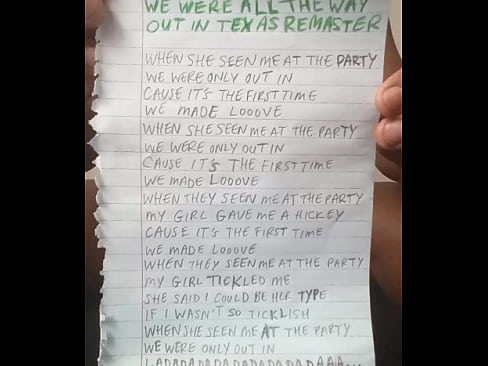 WE WERE ALL THE WAY
OUT IN TEXAS REMASTER
WHEN SHE SEEN ME AT THE PARTY
WE WERE ONLY OUT IN
CAUSE IT'S THE FIRST TIME
WE MADE LOOOVE
WHEN SHE SEEN ME AT THE PARTY
WE WERE ONLY OUT IN
CAUSE IT'S THE FIRST TIME
WE MADE LOOOVE
WHEN THEY SEEN ME AT THE PARTY
MY GIRL GAVE ME A HICKEY
CAUSE IT'S THE FIRST TIME
WE MADE LOOOVE
WHEN THEY SEEN ME AT THE PARTY
MY GIRL TICKLED ME
SHE SAID I COULD BE HER TYPE
IF I WASN'T SO TICKLISH
WHEN SHE SEEN ME AT THE PARTY
WE WERE ONLY OUT IN